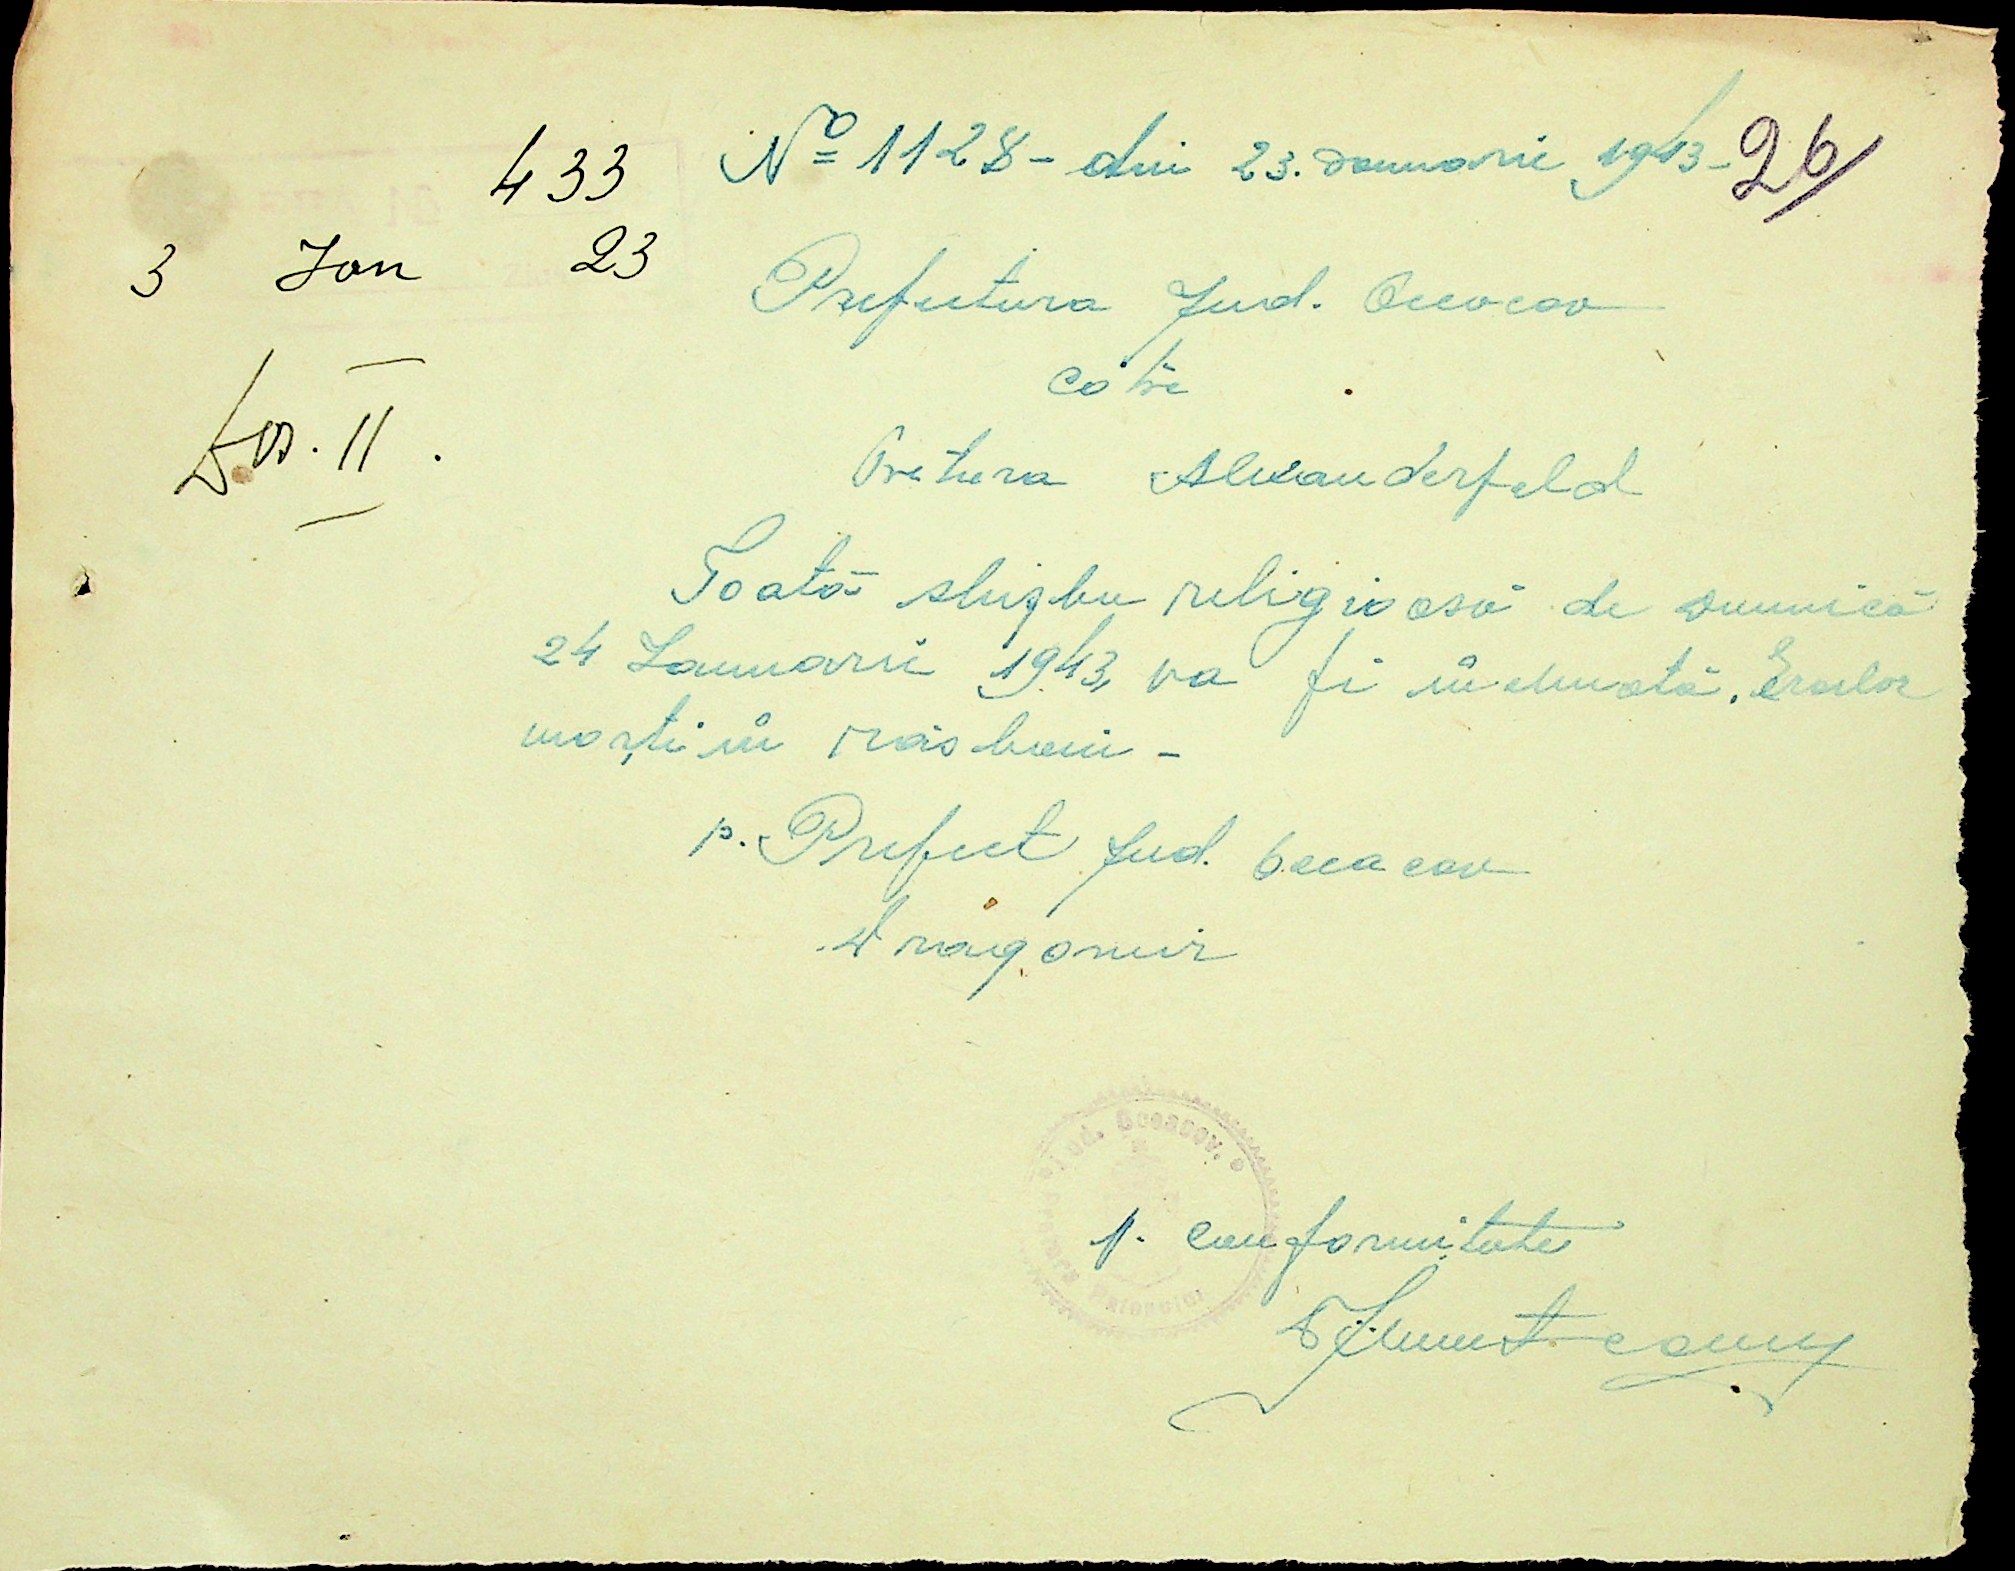 433
3 Ian 23
Dos. II.
No 1128 - din 23. Ianuarie 1943 -
26
Prefectura Jud. Oceacov
către
Pretura Alexanderfeld
Toată slujba religioasă de Duminică
24 Ianuarie 1943, va fi închinată. Eroilor
morți în răsboiu -
p. Prefect Jud. Oceacov
Dragomir
Jud. Oceacov.
p. conformitate